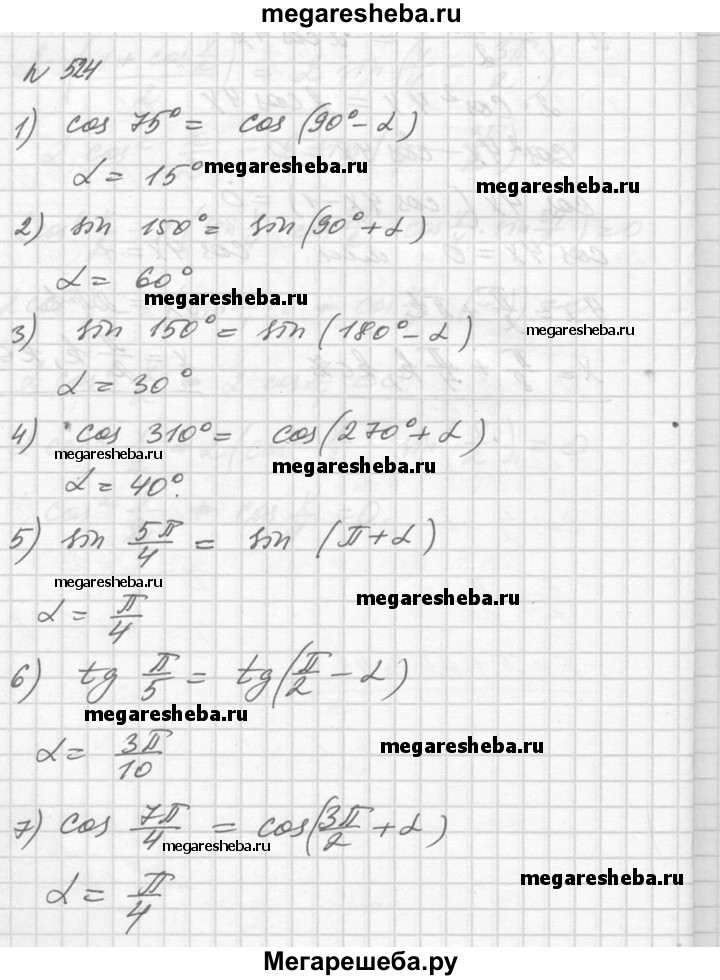 megaresheba.ru
N 524
1) cos 75° = cos (90° - α)
α = 15° megaresheba.ru
megaresheba.ru
2) sin 150° = sin (90° + α)
α = 60°
megaresheba.ru
3) sin 150° = sin (180° - α) megaresheba.ru
α = 30°
4) cos 310° = cos (270° + α)
megaresheba.ru megaresheba.ru
α = 40°.
5) sin 5π/4 = sin (π + α)
megaresheba.ru megaresheba.ru
α = π/4
6) tg π/5 = tg (π/2 - α)
megaresheba.ru
α = 3π/10 megaresheba.ru
7) cos 7π/4 = cos (3π/2 + α)
megaresheba.ru
α = π/4 megaresheba.ru
Мегарешеба.ру